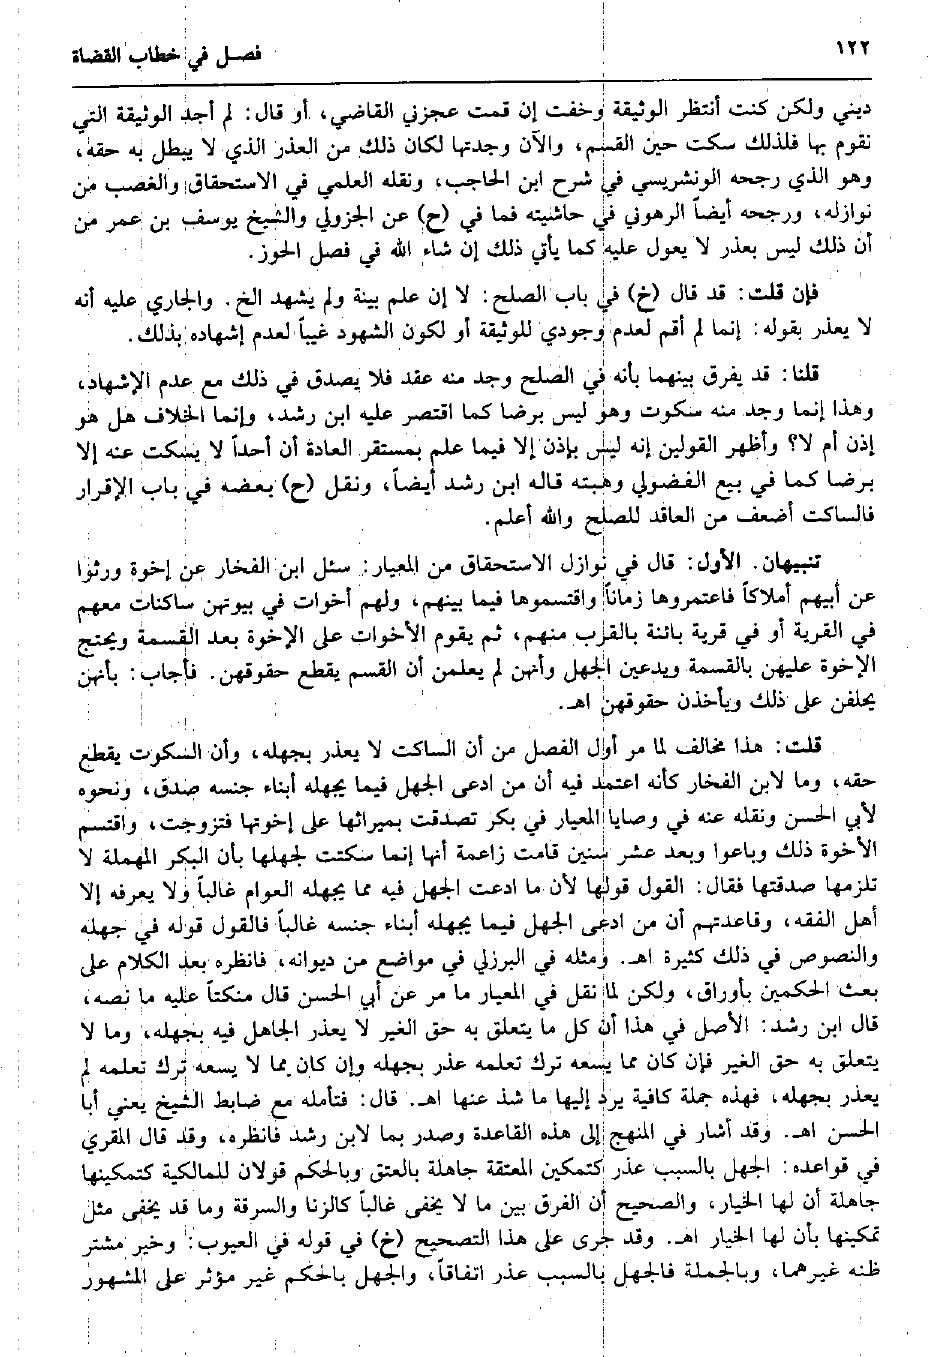 ١٢٢
فصل في خطاب القضاة
ديني ولكن كنت أنتظر الوثيقة وخفت إن قمت عجزني القاضي، أو قال: لم أجد الوثيقة التي
نقوم بها فلذلك سكت حين القسم، والآن وجدتها لكان ذلك من العذر الذي لا يبطل به حقه،
وهو الذي رجحه الونشريسي في شرح ابن الحاجب، ونقله العلمي في الاستحقاق والغصب من
نوازله، ورجحه أيضاً الرهوني في حاشيته فما في (ح) عن الجزولي والشيخ يوسف بن عمر من
أن ذلك ليس بعذر لا يعول عليه كما يأتي ذلك إن شاء الله في فصل الحوز.
فإن قلت: قد قال (خ) في باب الصلح: لا إن علم بينة ولم يشهد الخ. والجاري عليه أنه
لا يعذر بقوله: إنما لم أقم لعدم وجودي للوثيقة أو لكون الشهود غيباً لعدم إشهاده بذلك.
قلنا: قد يفرق بينهما بأنه في الصلح وجد منه عقد فلا يصدق في ذلك مع عدم الإشهاد،
وهذا إنما وجد منه سكوت وهو ليس برضا كما اقتصر عليه ابن رشد، وإنما الخلاف هل هو
إذن أم لا؟ وأظهر القولين إنه ليس بإذن إلا فيما علم بمستقر العادة أن أحداً لا يسكت عنه إلا
برضا كما في بيع الفضولي وهبته قاله ابن رشد أيضاً، ونقل (ح) بعضه في باب الإقرار
فالساكت أضعف من العاقد للصلح والله أعلم.
تنبيهان. الأول: قال في نوازل الاستحقاق من المعيار: سئل ابن الفخار عن إخوة ورثوا
عن أبيهم أملاكاً فاعتمروها زماناً واقتسموها فيما بينهم، ولهم أخوات في بيوتهن ساكنات معهم
في القرية أو في قرية بائنة بالقرب منهم، ثم يقوم الأخوات على الإخوة بعد القسمة ويحتج
الإخوة عليهن بالقسمة ويدعين الجهل وأنهن لم يعلمن أن القسم يقطع حقوقهن. فأجاب: بأنهن
يحلفن على ذلك ويأخذن حقوقهن اهـ.
قلت: هذا مخالف لما مر أول الفصل من أن الساكت لا يعذر بجهله، وأن السكوت يقطع
حقه، وما لابن الفخار كأنه اعتمد فيه أن من ادعى الجهل فيما يجهله أبناء جنسه صدق، ونحوه
لأبي الحسن ونقله عنه في وصايا المعيار في بكر تصدقت بميراثها على إخوتها فتزوجت، واقتسم
الأخوة ذلك وباعوا وبعد عشر سنين قامت زاعمة أنها إنما سكتت لجهلها بأن البكر المهملة لا
تلزمها صدقتها فقال: القول قولها لأن ما ادعت الجهل فيه مما يجهله العوام غالباً ولا يعرفه إلا
أهل الفقه، وقاعدتهم أن من ادعى الجهل فيما يجهله أبناء جنسه غالباً فالقول قوله في جهله
والنصوص في ذلك كثيرة اهـ. ومثله في البرزلي في مواضع من ديوانه، فانظره بعد الكلام على
بعث الحكمين بأوراق، ولكن لما نقل في المعيار ما مر عن أبي الحسن قال منكتاً عليه ما نصه،
قال ابن رشد: الأصل في هذا أن كل ما يتعلق به حق الغير لا يعذر الجاهل فيه بجهله، وما لا
يتعلق به حق الغير فإن كان مما يسعه ترك تعلمه عذر بجهله وإن كان مما لا يسعه ترك تعلمه لم
يعذر بجهله، فهذه جملة كافية يرد إليها ما شذ عنها اهـ. قال: فتأمله مع ضابط الشيخ يعني أبا
الحسن اهـ. وقد أشار في المنهج إلى هذه القاعدة وصدر بما لابن رشد فانظره، وقد قال المقري
في قواعده: الجهل بالسبب عذر كتمكين المعتقة جاهلة بالعتق وبالحكم قولان للمالكية كتمكينها
جاهلة أن لها الخيار، والصحيح أن الفرق بين ما لا يخفى غالباً كالزنا والسرقة وما قد يخفى مثل
تمكينها بأن لها الخيار اهـ. وقد جرى على هذا التصحيح (خ) في قوله في العيوب: وخير مشتر
ظنه غيرهما، وبالجملة فالجهل بالسبب عذر اتفاقاً، والجهل بالحكم غير مؤثر على المشهور